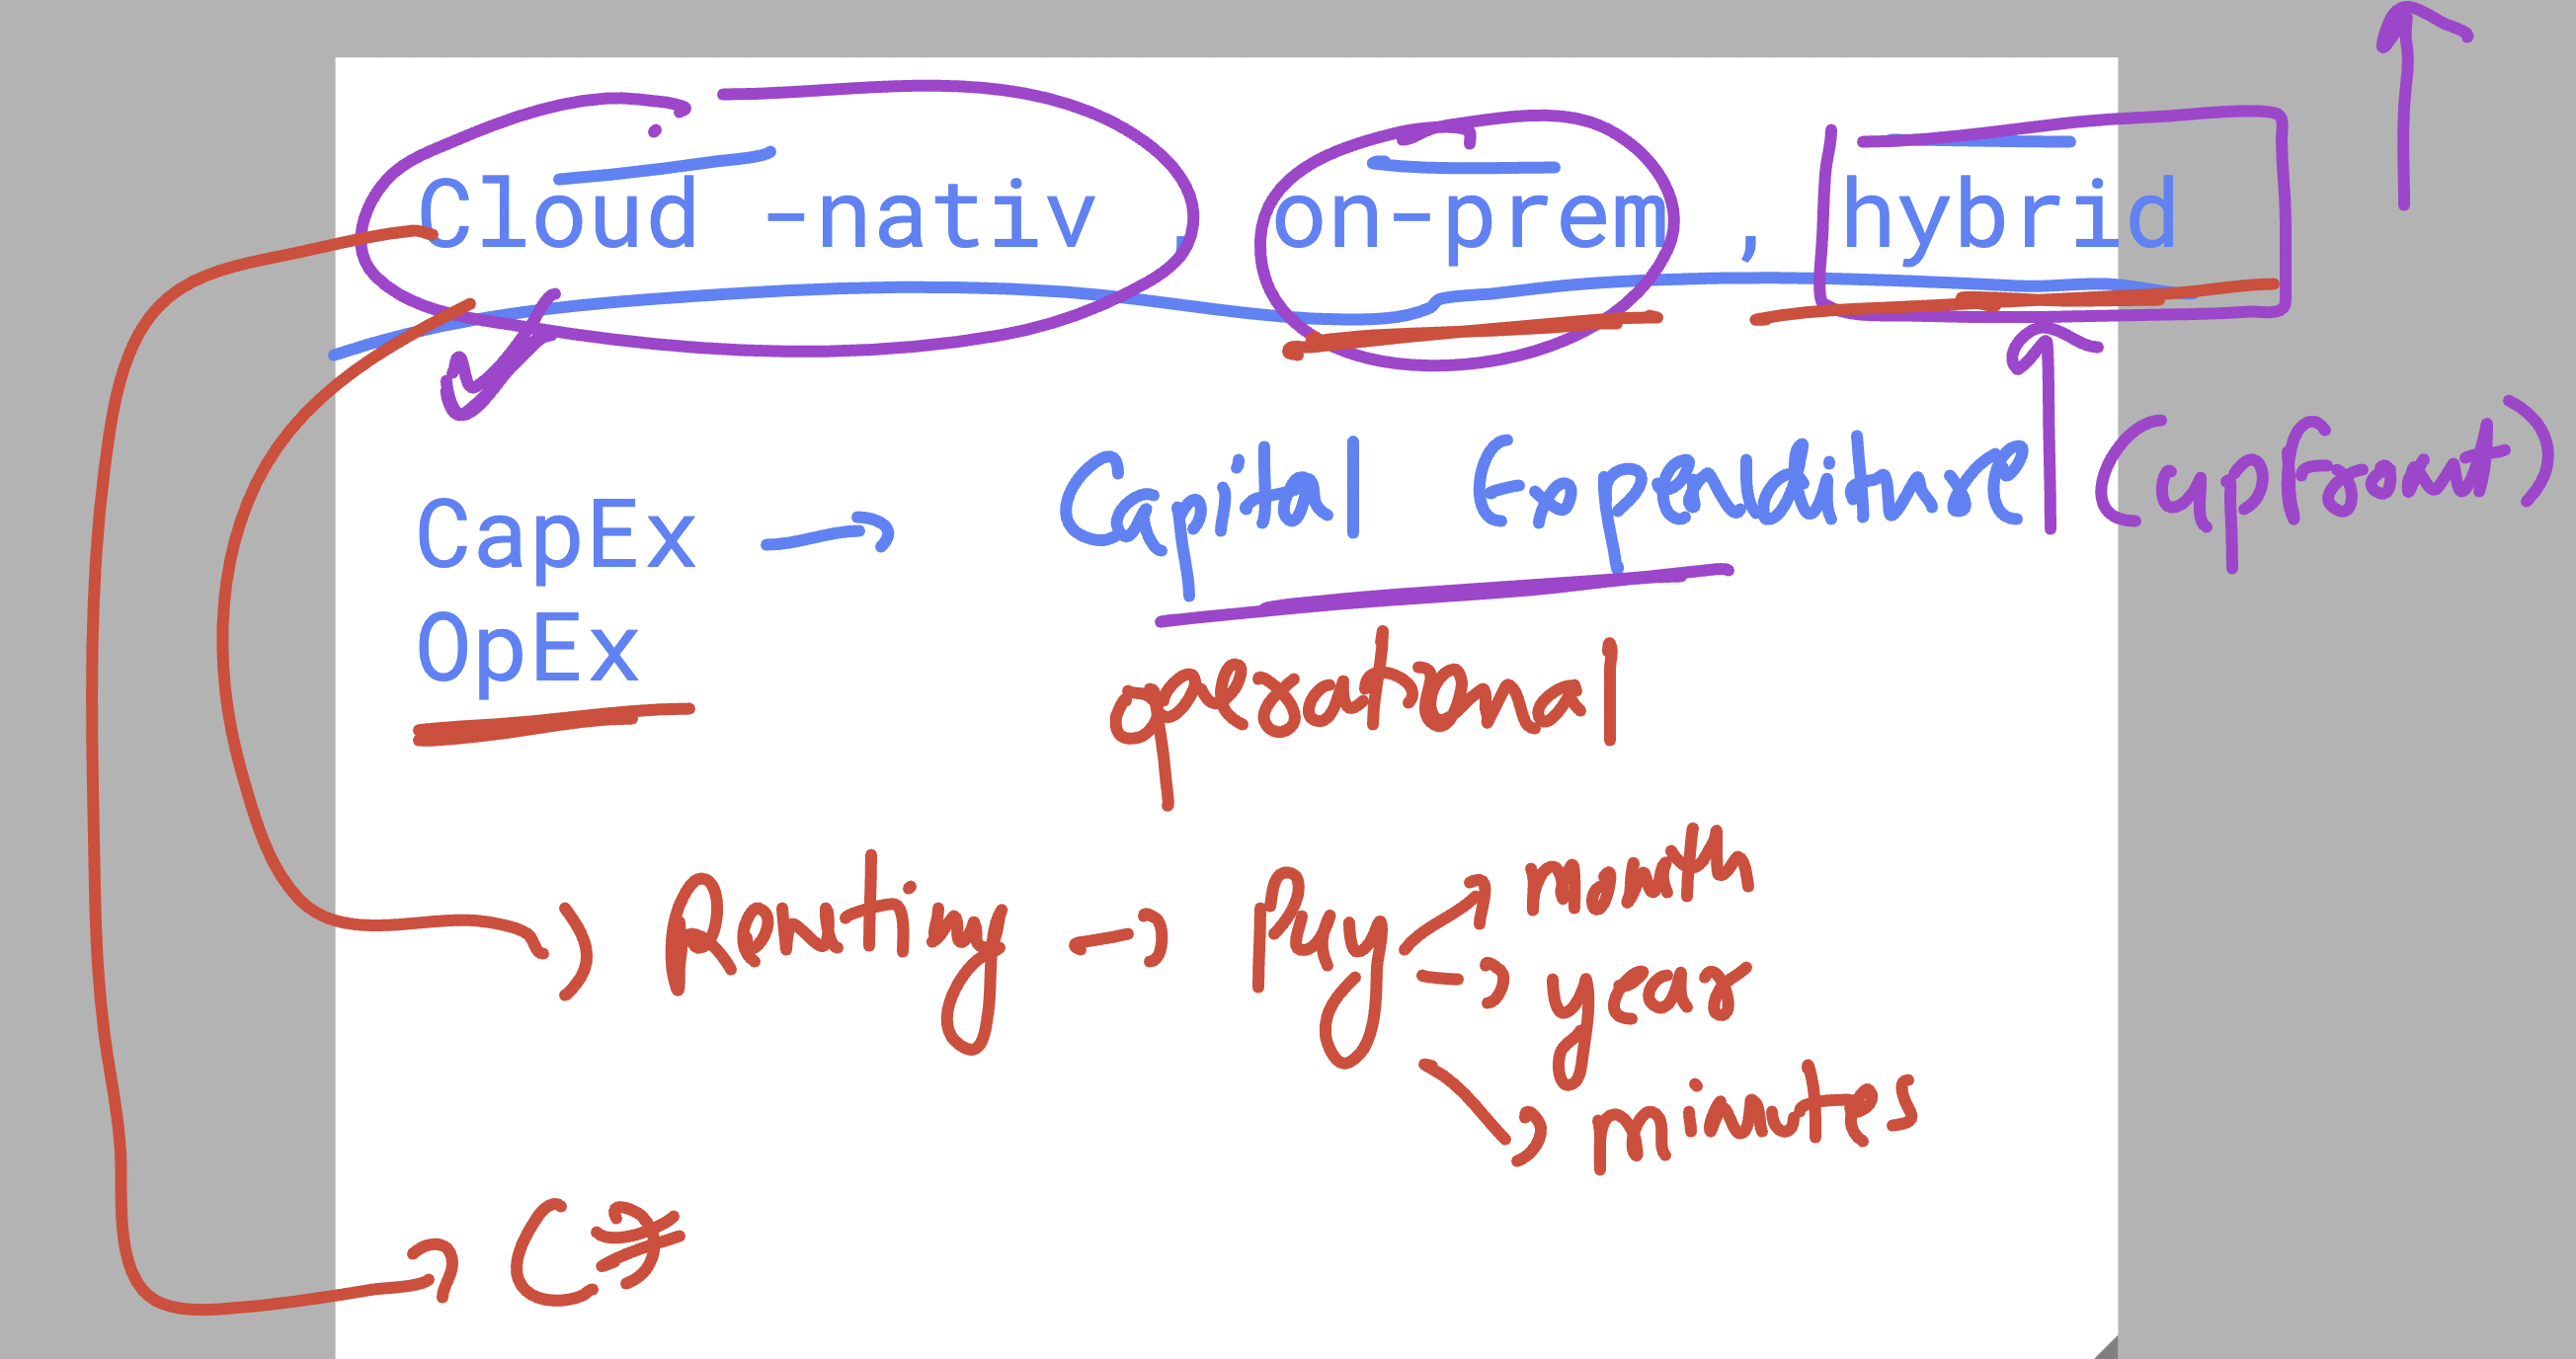 Cloud -nativ , on-prem , hybrid
CapEx → Capital Expenditure (upfront)
OpEx operational
Renting → Pay → month
→ year
→ minutes